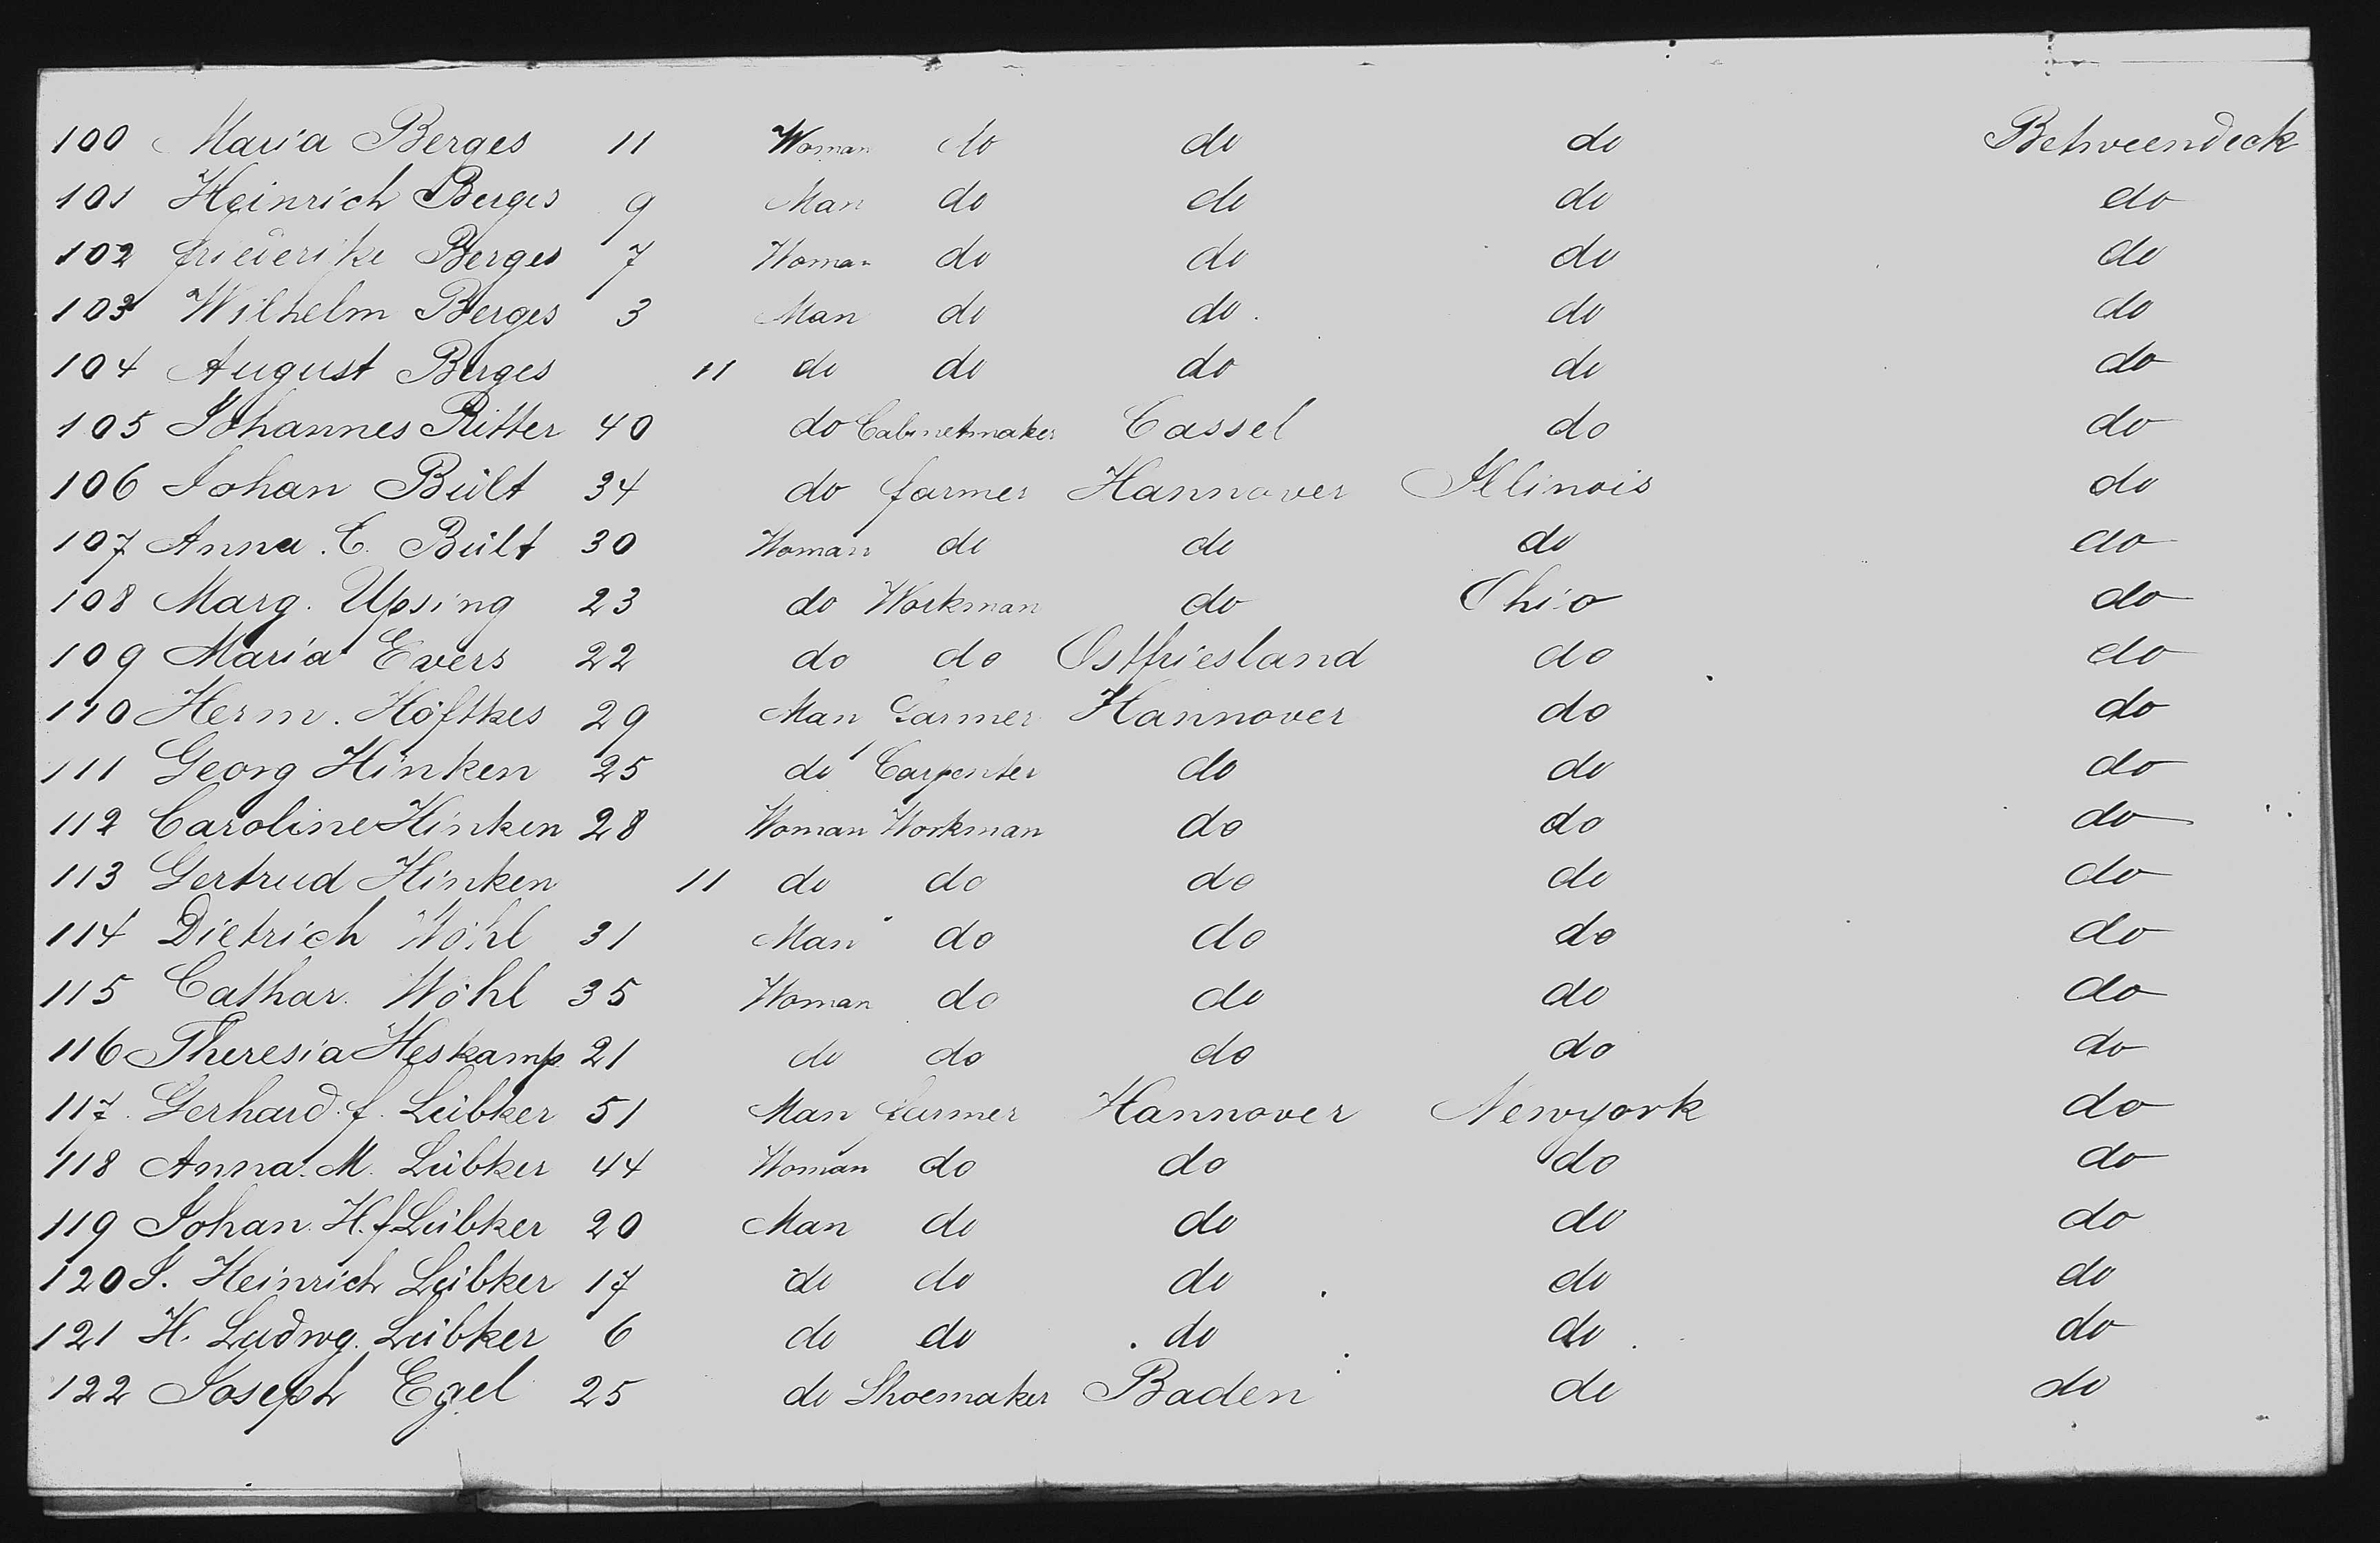 100 Maria Berges 11 Woman do do do Betweendeck
101 Heinrich Berges 9 Man do do do do
102 Friederike Berges 7 Woman do do do do
103 Wilhelm Berges 3 Man do do. do do
104 August Berges 11 do do do do do
105 Johannes Ritter 40 do Cabinetmaker Cassel do do
106 Johan Bült 34 do farmer Hannover Illinois do
107 Anna. C. Bült 30 Woman do do do do
108 Marg. Upsing 23 do Workman do Ohio do
109 Maria Evers 22 do do Ostfriesland do do
110 Herm. Höftkes 29 Man Farmer Hannover do do
111 Georg Hinken 25 do Carpenter do do do
112 Caroline Hinken 28 Woman Workman do do do
113 Gertrud Hinken 11 do do do do do
114 Dietrich Wöhl 31 Man do do do do
115 Cathar. Wöhl 35 Woman do do do do
116 Theresia Heskamp 21 do do do do do
117. Gerhard. f. Lübker 51 Man farmer Hannover Newyork do
118 Anna. M. Lübker 44 Woman do do do do
119 Johan. H. f. Lübker 20 Man do do do do
120 J. Heinrich Lübker 17 do do do do do
121 H. Ludwg. Lübker 6 do do do do do
122 Joseph Egel 25 do Shoemaker Baden do do